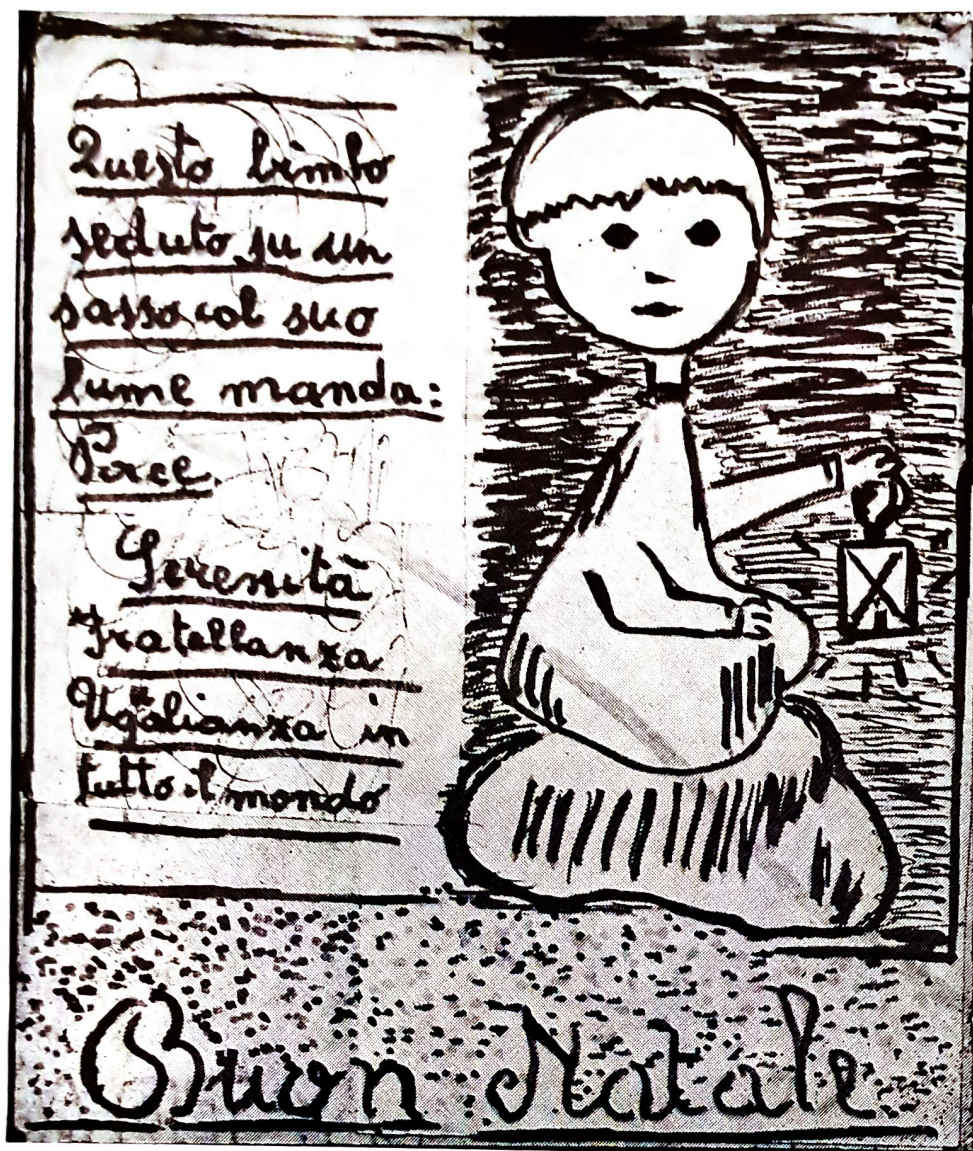 Questo bimbo
seduto su un
sasso col suo
lume manda:
Pace
Serenità
Fratellanza
Uguglianza in
tutto il mondo
Buon Natale